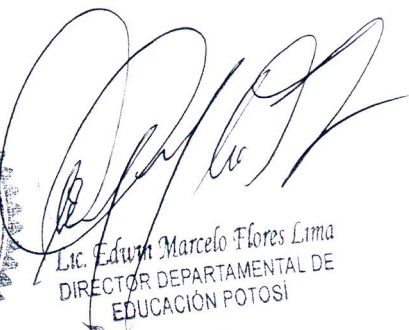 Lic. Edwin Marcelo Flores Lima
DIRECTOR DEPARTAMENTAL DE
EDUCACIÓN POTOSÍ